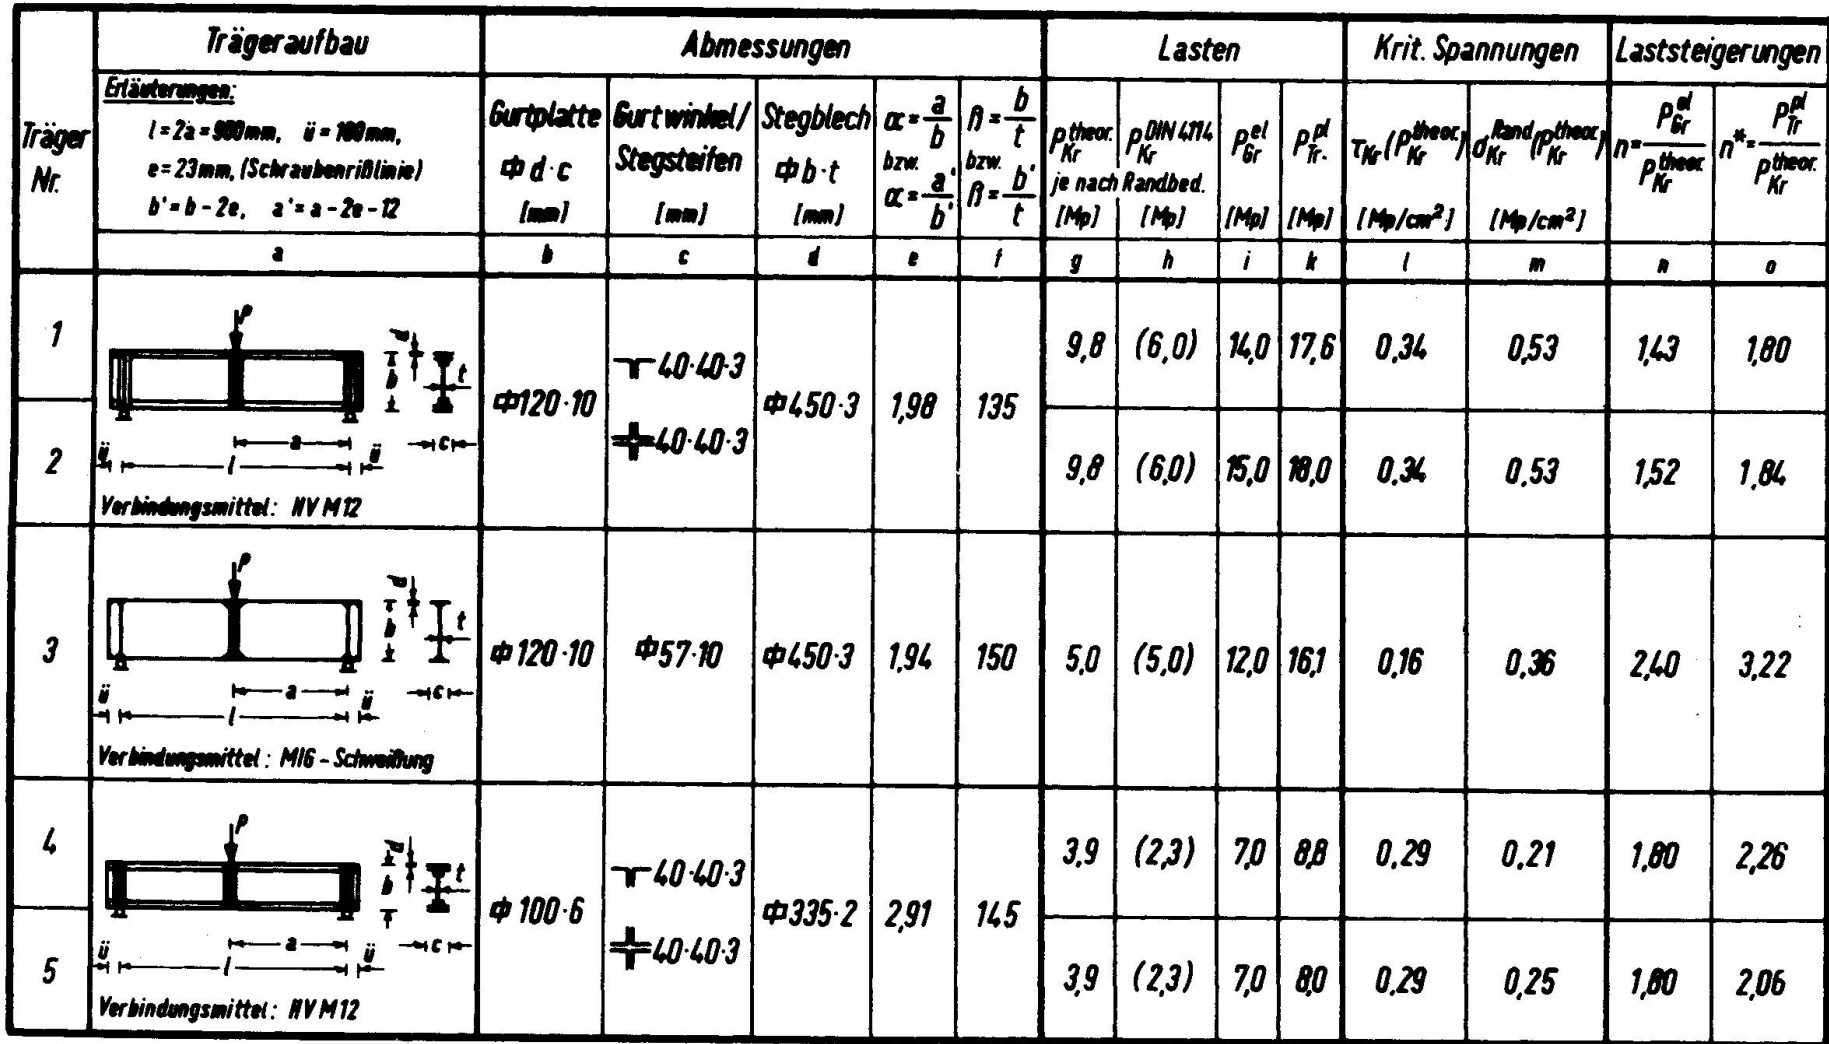 Träger Nr.
Trägeraufbau
Abmessungen
Lasten
Krit. Spannungen
Laststeigerungen
Erläuterungen:
l = 2a = 900mm, ü = 100mm,
e = 23mm, (Schraubenrißlinie)
b' = b - 2e, a' = a - 2e - 12
Gurtplatte ⌽ d·c [mm]
Gurtwinkel/ Stegsteifen [mm]
Stegblech ⌽ b·t [mm]
α = a/b bzw. α = a'/b'
β = b/t bzw. β = b'/t
P_Kr^theor. P_Kr^DIN 4114
je nach Randbed.
[Mp] [Mp]
P_Gr^el [Mp]
P_Tr.^pl [Mp]
τ_Kr (P_Kr^theor.) [Mp/cm²]
σ_Kr^Rand (P_Kr^theor.) [Mp/cm²]
n = P_Gr^el / P_Kr^theor.
n* = P_Tr^pl / P_Kr^theor.
a b c d e f g h i k l m n o
1
P
d
b
t
a
c
ü l ü
Verbindungsmittel: HV M12
⌽120·10
40·40·3
40·40·3
⌽450·3
1,98
135
9,8 (6,0) 14,0 17,6 0,34 0,53 1,43 1,80
2
9,8 (6,0) 15,0 18,0 0,34 0,53 1,52 1,84
3
P
d
b
t
a
c
ü l ü
Verbindungsmittel: MIG - Schweißung
⌽120·10 ⌽57·10 ⌽450·3 1,94 150 5,0 (5,0) 12,0 16,1 0,16 0,36 2,40 3,22
4
P
d
b
t
a
c
ü l ü
Verbindungsmittel: HV M12
⌽100·6
40·40·3
40·40·3
⌽335·2
2,91
145
3,9 (2,3) 7,0 8,8 0,29 0,21 1,80 2,26
5
3,9 (2,3) 7,0 8,0 0,29 0,25 1,80 2,06